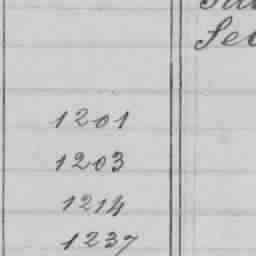 Sec
1201
1203
1214
1237